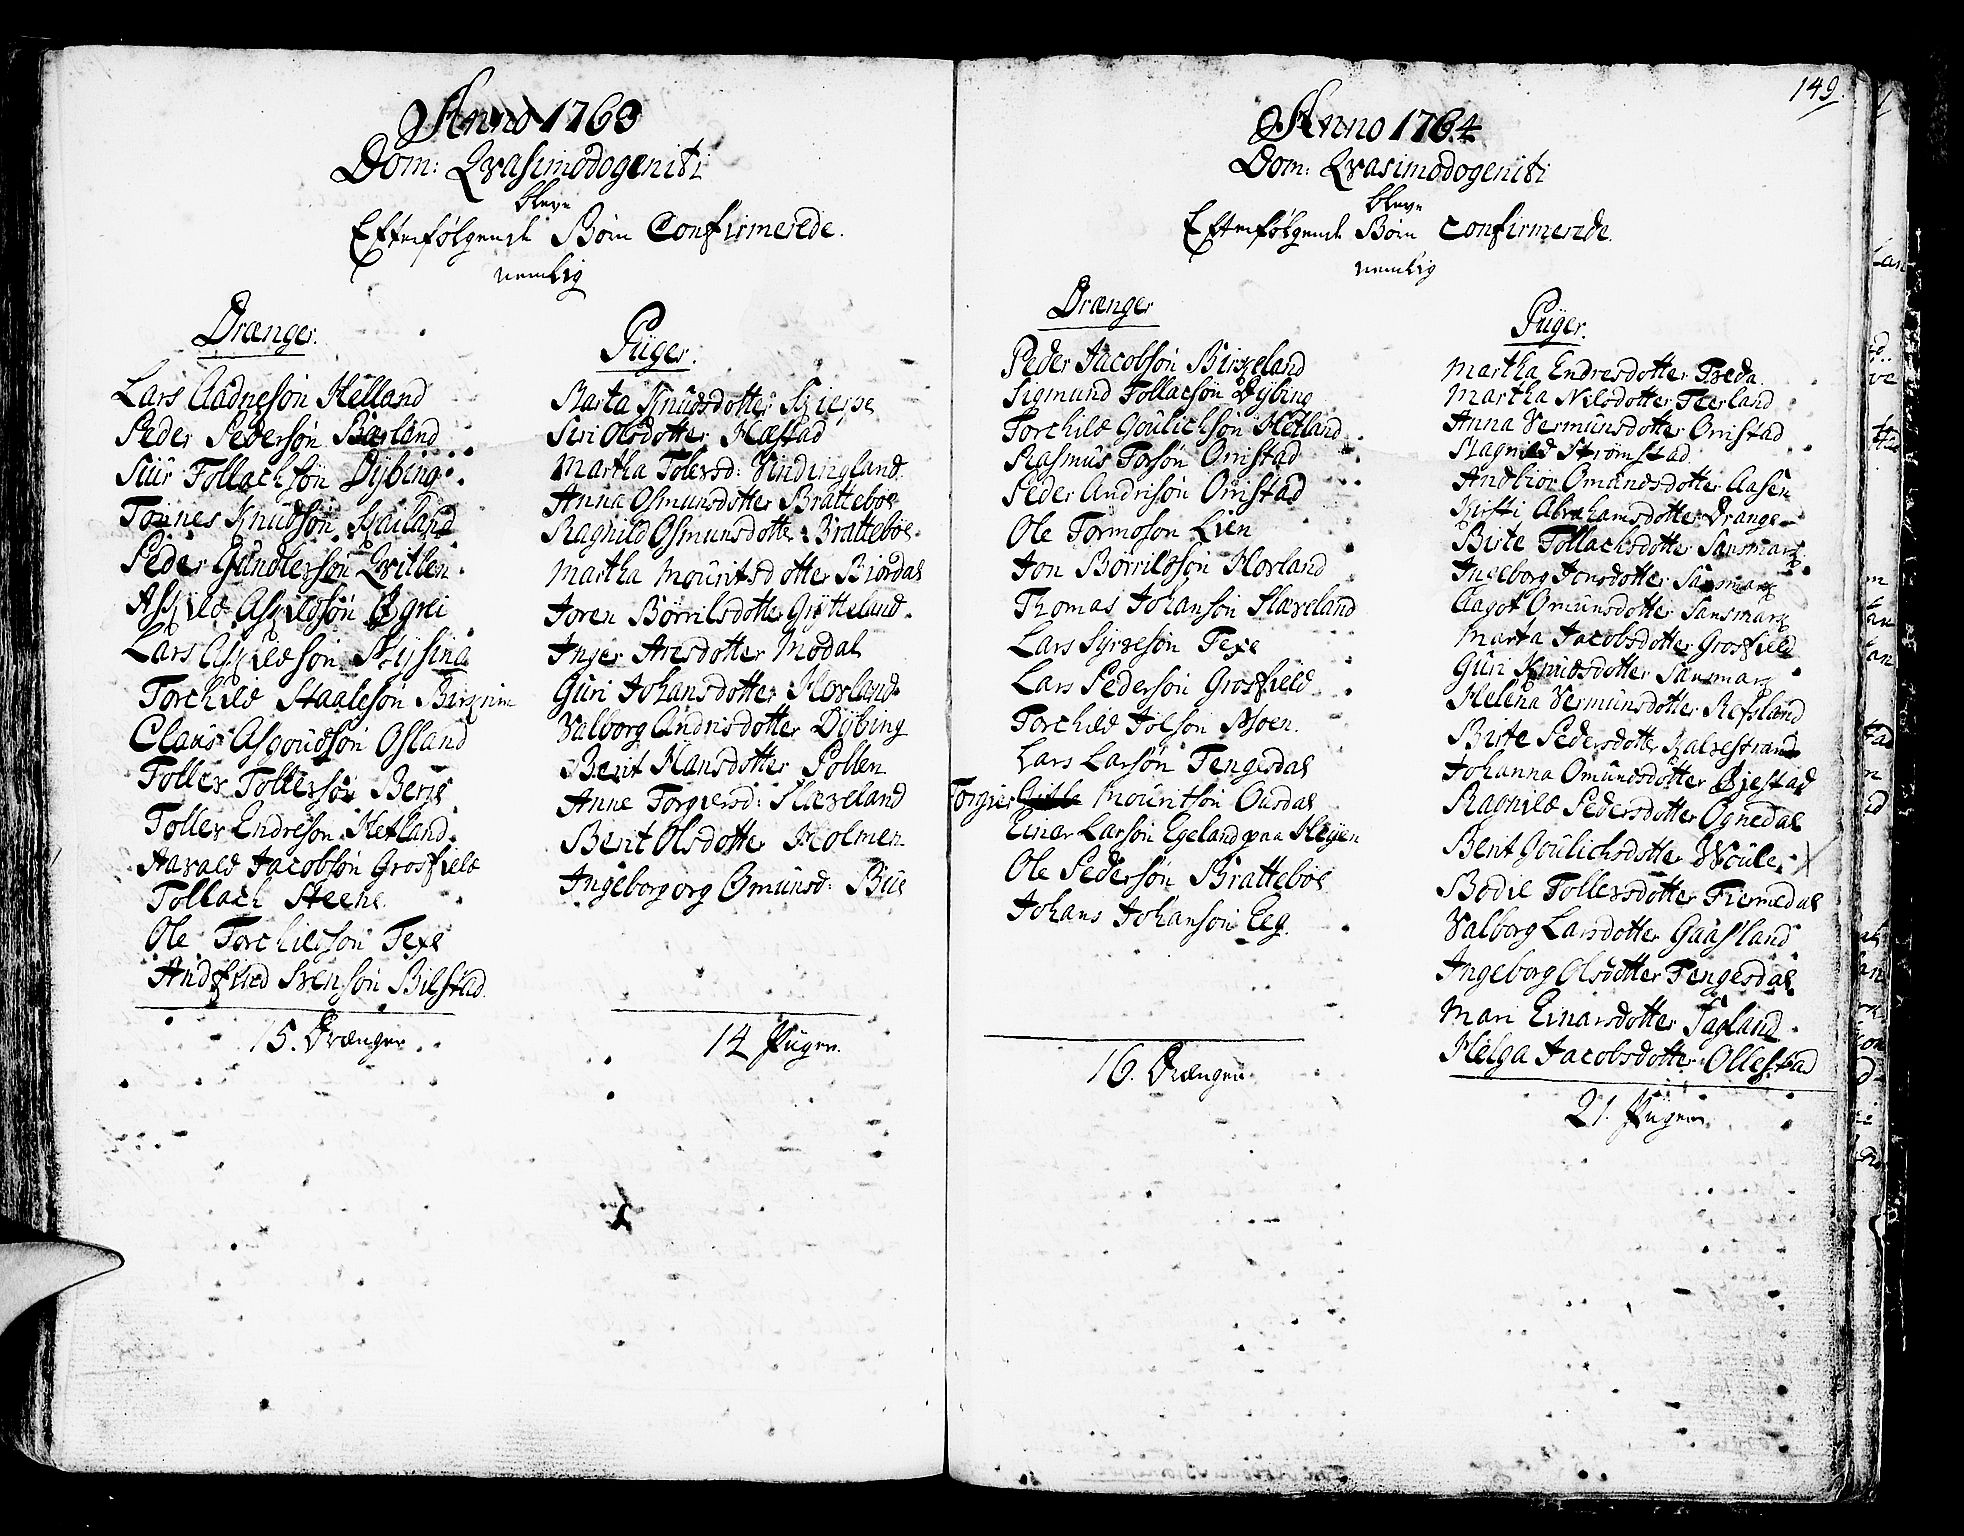 Anno 1763
Dom: Qvasimodogeniti
bleve
Efterfølgende Børn Confirmerede.
nemlig
Drænger.
Lars Aadnesøn Helland
Peder Pedersøn Bærland
Siur Tollachsøn Dybing
Tønnes Knudsøn
Peder Gundlersøn Qvitlen
Askild Askildsøn Øgrei
Lars Askildsøn
Torchild Staalesøn
Claus Asgoudsøn Osland
Toller Tollersøn Berge
Toller Endresøn Hetland
Aavald Jacobsøn Grosfield
Tollach Steene
Ole Torchildsøn Texe
Andfind Svensøn Bilstad
15. Drænger
Piiger.
Marta Knudsdotter Skierpe
Siri Olsdotter Hæstad
Martha Tolersd: Vindingland.
Anna Osmunsdotter Bratteboe
Ragnild Osmunsdotter Bratteboe.
Martha Mouritsdotter Biordal
Joren Børrilsdotter Gryteland.
Inger Aresdotter Modal
Guri Johansdotter Hovland.
Valborg Andrisdotter Dybing
Berit Hansdotter Pollen
Anne Torgiersd: Slæveland
Berit Olsdotter Holmen
Ingeborg org Omunsd: Bue
14 Piiger.
149
Anno 1764
Dom: Qvasimodogeniti
bleve
Efterfølgende Børn Confirmerede.
nemlig
Drænger
Peder Jacobsøn Birkeland
Sigmund Tollacsøn Dybing
Torchild Goulichsøn Hetland
Rasmus Torsøn Orrestad
Peder Andrisøn Orrestad
Ole Tormosøn Lien
Jon Børrildsøn Hovland
Thomas Johansøn Slæveland
Lars Syvesøn Texe
Lars Pedersøn Grosfield
Torchild Joelsøn Moen.
Lars Larsøn Tengesdal
Torgier Mouritsøn Ousdal
Einer Larsøn Egeland paa Heyen
Ole Pedersøn Bratteboe
Johans Johansøn Eeg.
16. Drænger
Piiger.
Martha Endresdotter Treda
Martha Nilsdotter Teerland
Anna Vermunsdotter Orrestad
Ragnild Strømstad
Andbior Omundsdotter Aasen
Kirsti Abrahamsdotter Drange
Birte Tollachsdotter Sansmark
Ingeborg Jonsdotter Sansmark
Aagot Omunsdotter Sansmark
Marta Jacobsdotter Grosfield
Guri Knudsdotter Sansmark
Helena Vermunsdotter Refsland
Birte Pedersdotter Kalvestrand
Johanna Omundsdotter Øiestad
Ragnild Pedersdotter Ognedal
Berit Goulichsdotter Woule
Bodil Tollersdotter Tiermedal
Valborg Larsdotter Gaasland
Ingeborg Olsdotter Tengesdal
Mari Einarsdotter Fagland
Helga Jacobsdotter Ollestad
21. Piiger